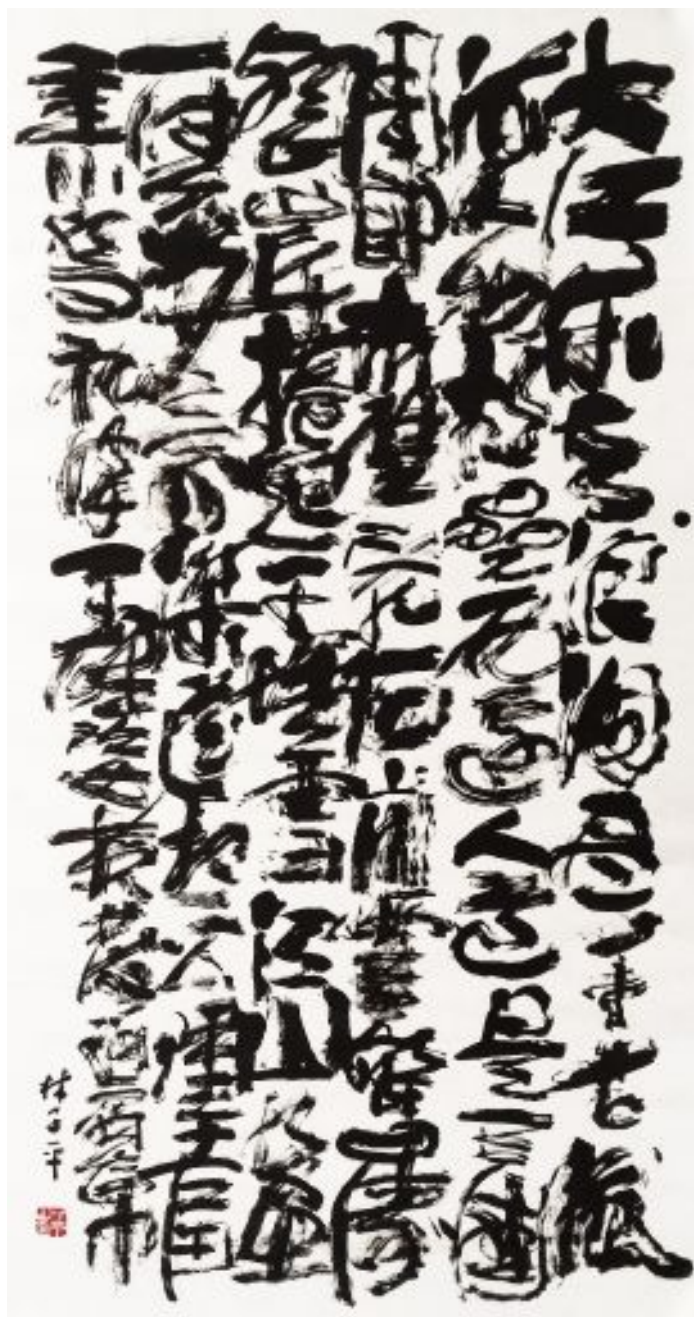 大江东去浪淘尽千古風
流人物故垒西边人道是三國
周郎赤壁乱石穿空驚濤
裂岸捲起千堆雪江山如畫
一時多少豪傑遥想公瑾當
年小喬初嫁了雄姿英發羽扇綸巾